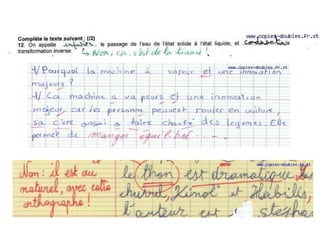 Complète le texte suivant (/2)
www.copies-doubles.fr.st
12. On appelle infusion, le passage de l'eau de l'état solide à l'état liquide, et
transformation inverse. Non, ça c'est de la tisane !
www.copies-doubles.fr.st
1/ Pourquoi la machine à vapeur et une innovation
majeurs ?
1/ La machine a vapeurs et une innovation
majeur car les personne peuvent rouler en voiture,
sa c'ere ausai a faire chaufé des legumes. Elle
permet de manger équilibré...
www.copies-doubles.fr.st
Non: il est au
naturel, avec cette
orthographe !
le thon est dramatique
churrel, Kinot et Habilis,
l'auteur est